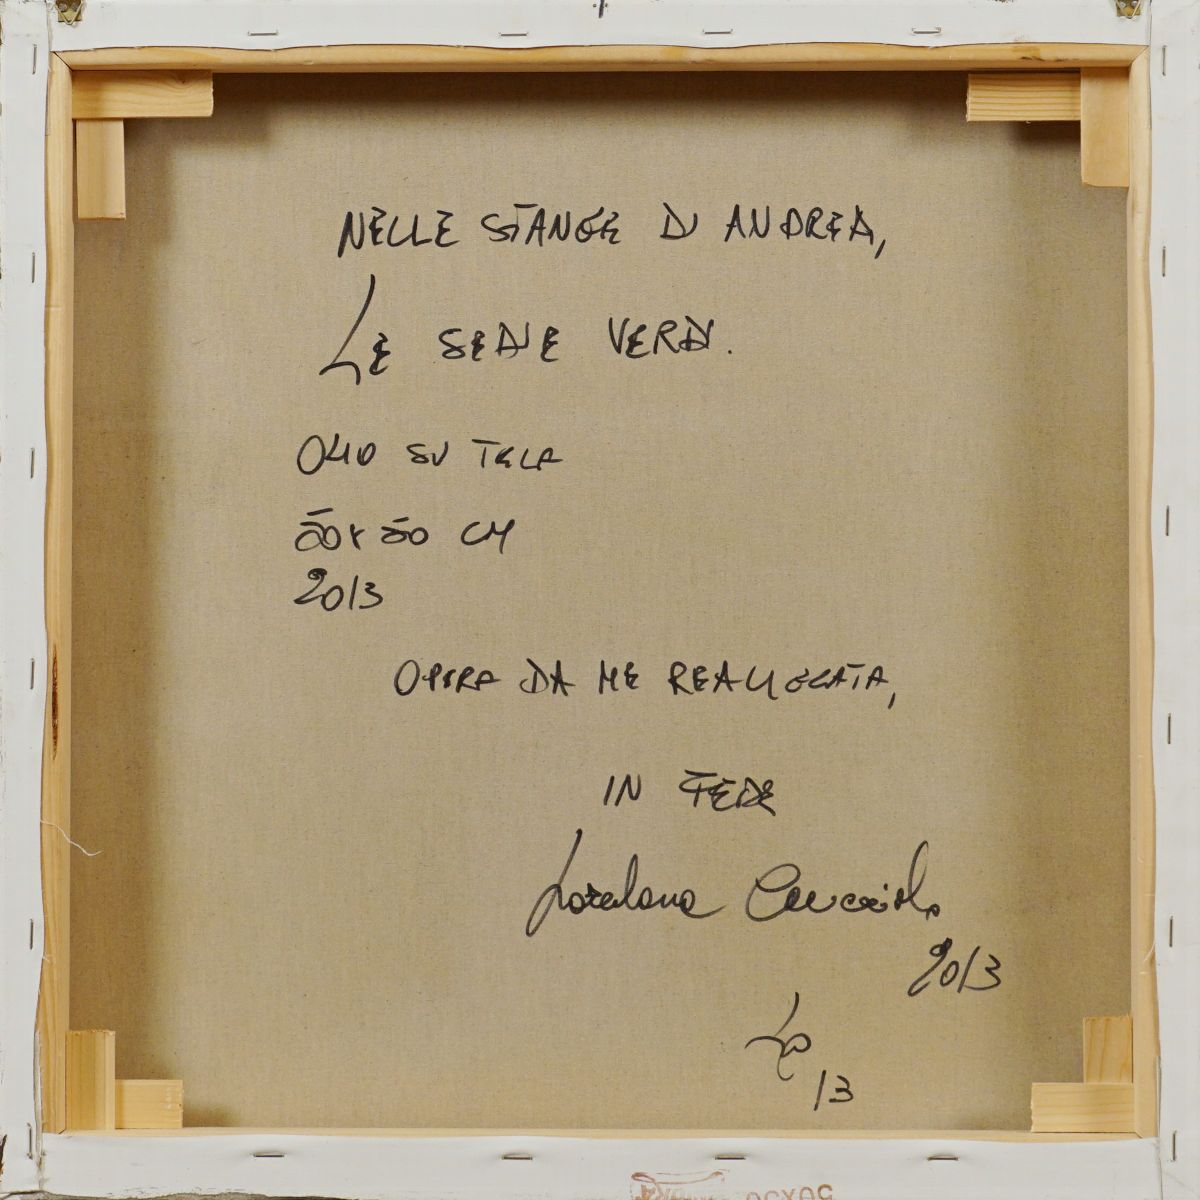 NELLE STANZE DI ANDREA,
LE SEDIE VERDI.
OLIO SU TELA
50x50 CM
2013
OPERA DA ME REALIZZATA,
IN FEDE
Loredana
2013
13